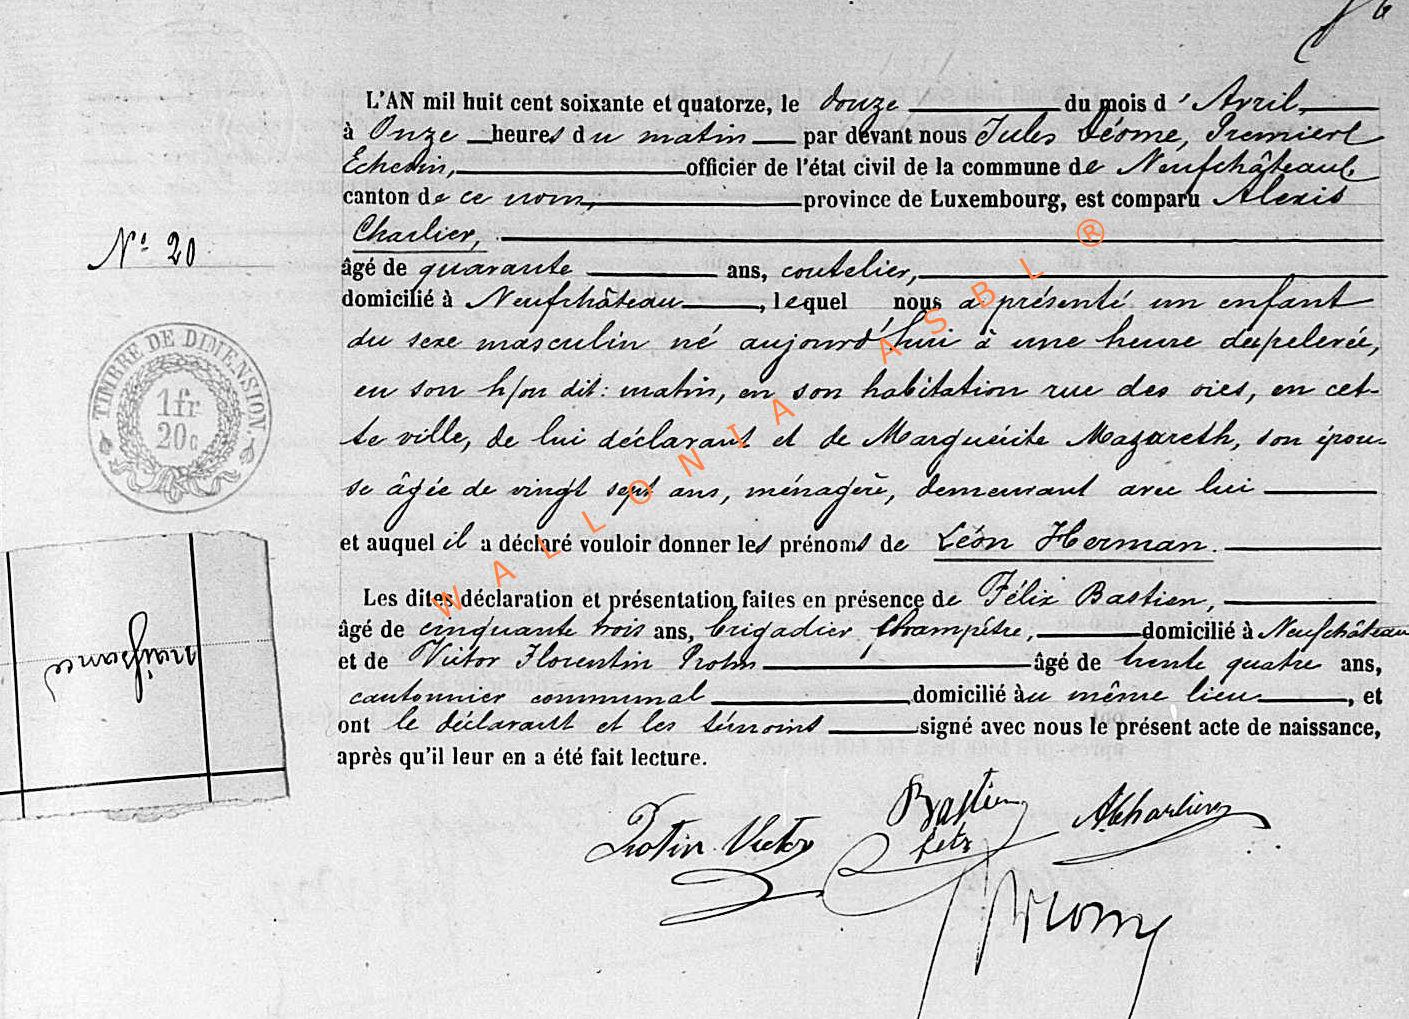 L'AN mil huit cent soixante et quatorze, le douze du mois d'Avril,
à Onze heures du matin par devant nous Jules Déome, Premier
Echevin, officier de l'état civil de la commune de Neufchâteau,
canton de ce nom, province de Luxembourg, est comparu Alexis
Charlier,
N° 20
âgé de quarante ans, coutelier,
domicilié à Neufchâteau, lequel nous a présenté un enfant
du sexe masculin né aujourd'hui à une heure
TIMBRE DE DIMENSION.
1fr
20c
en son dit: matin, en son habitation rue des oies, en cet-
te ville, de lui déclarant et de Marguérite Mazareth, son épou-
se âgée de vingt sept ans, ménagère, demeurant avec lui
et auquel il a déclaré vouloir donner les prénoms de Léon Herman.
Les dites déclaration et présentation faites en présence de Félix Bastien,
âgé de cinquante trois ans, brigadier champêtre, domicilié à Neufchâteau
et de Victor Florentin âgé de trente quatre ans,
cantonnier communal domicilié au même lieu, et
ont le déclarant et les témoins signé avec nous le présent acte de naissance,
après qu'il leur en a été fait lecture.
naissance
Bastien
A. Charlier
Victor
WALLONIA ASBL ®